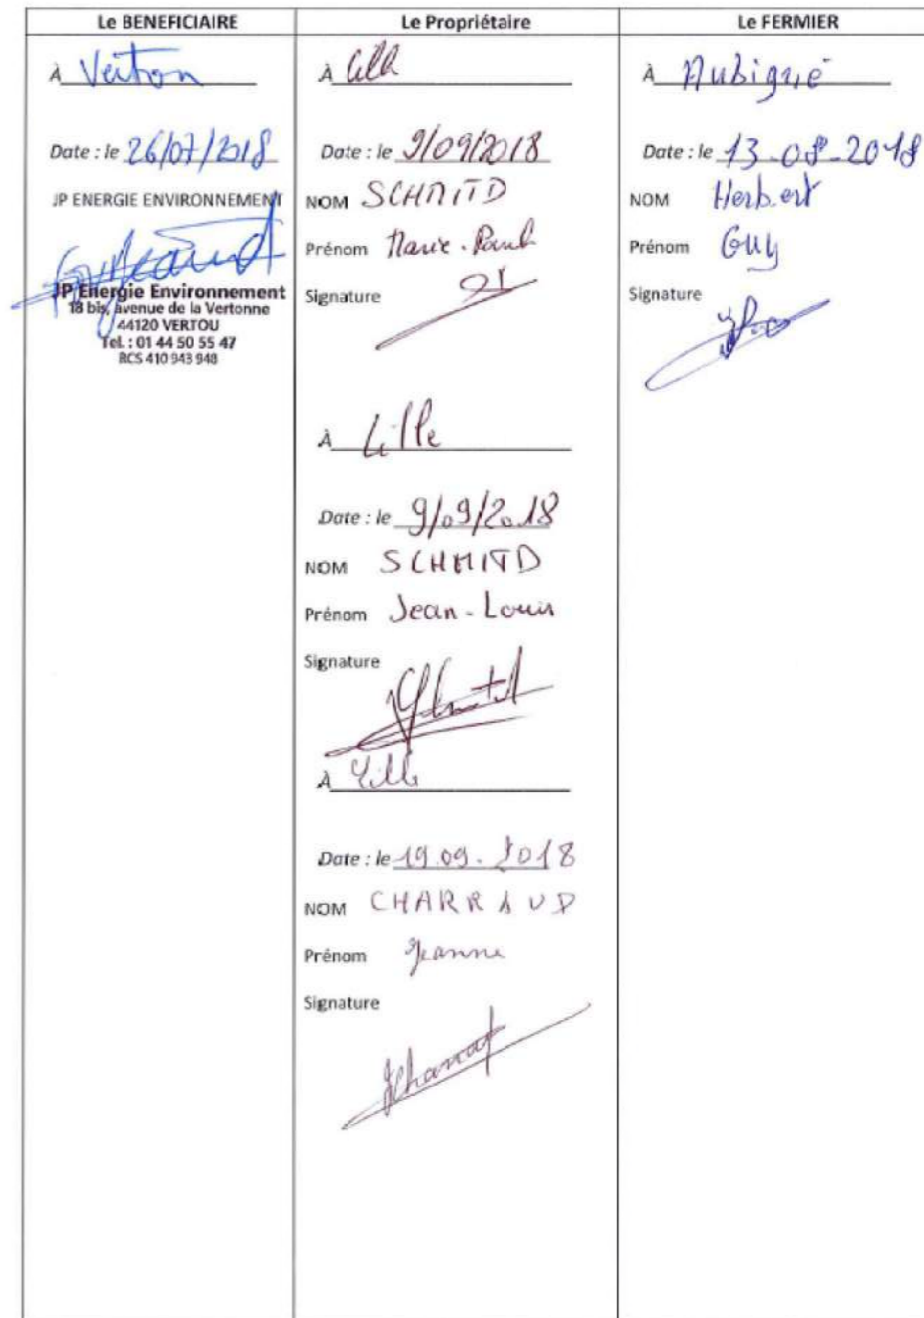 Le BENEFICIAIRE
À Vertou
Date : le 26/07/2018
JP ENERGIE ENVIRONNEMENT
JP Energie Environnement
18 bis, avenue de la Vertonne
44120 VERTOU
Tel. : 01 44 50 55 47
RCS 410 943 948
Le Propriétaire
À Lille
Date : le 9/09/2018
NOM SCHMITD
Prénom Marie-Paule
Signature
À Lille
Date : le 9/09/2018
NOM SCHMITD
Prénom Jean-Louis
Signature
À Lille
Date : le 19.09.2018
NOM CHARRAUD
Prénom Jeanne
Signature
Le FERMIER
À Aubigné
Date : le 13-08-2018
NOM Herbert
Prénom Guy
Signature